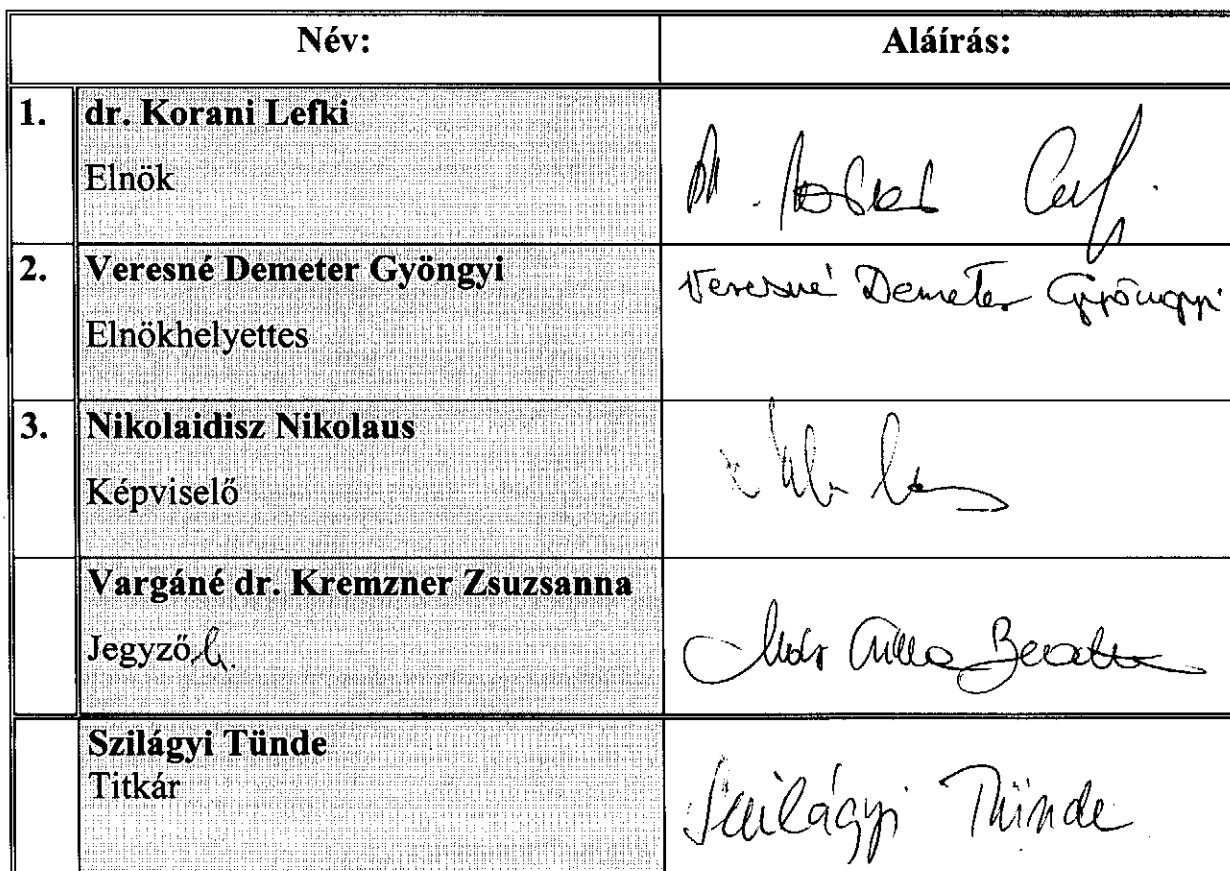 Név: Aláírás:
1. dr. Korani Lefki
Elnök
2. Veresné Demeter Gyöngyi Veresné Demeter Gyöngyi
Elnökhelyettes
3. Nikolaidisz Nikolaus
Képviselő
Vargáné dr. Kremzner Zsuzsanna
Jegyző h.
Szilágyi Tünde
Titkár
Szilágyi Tünde